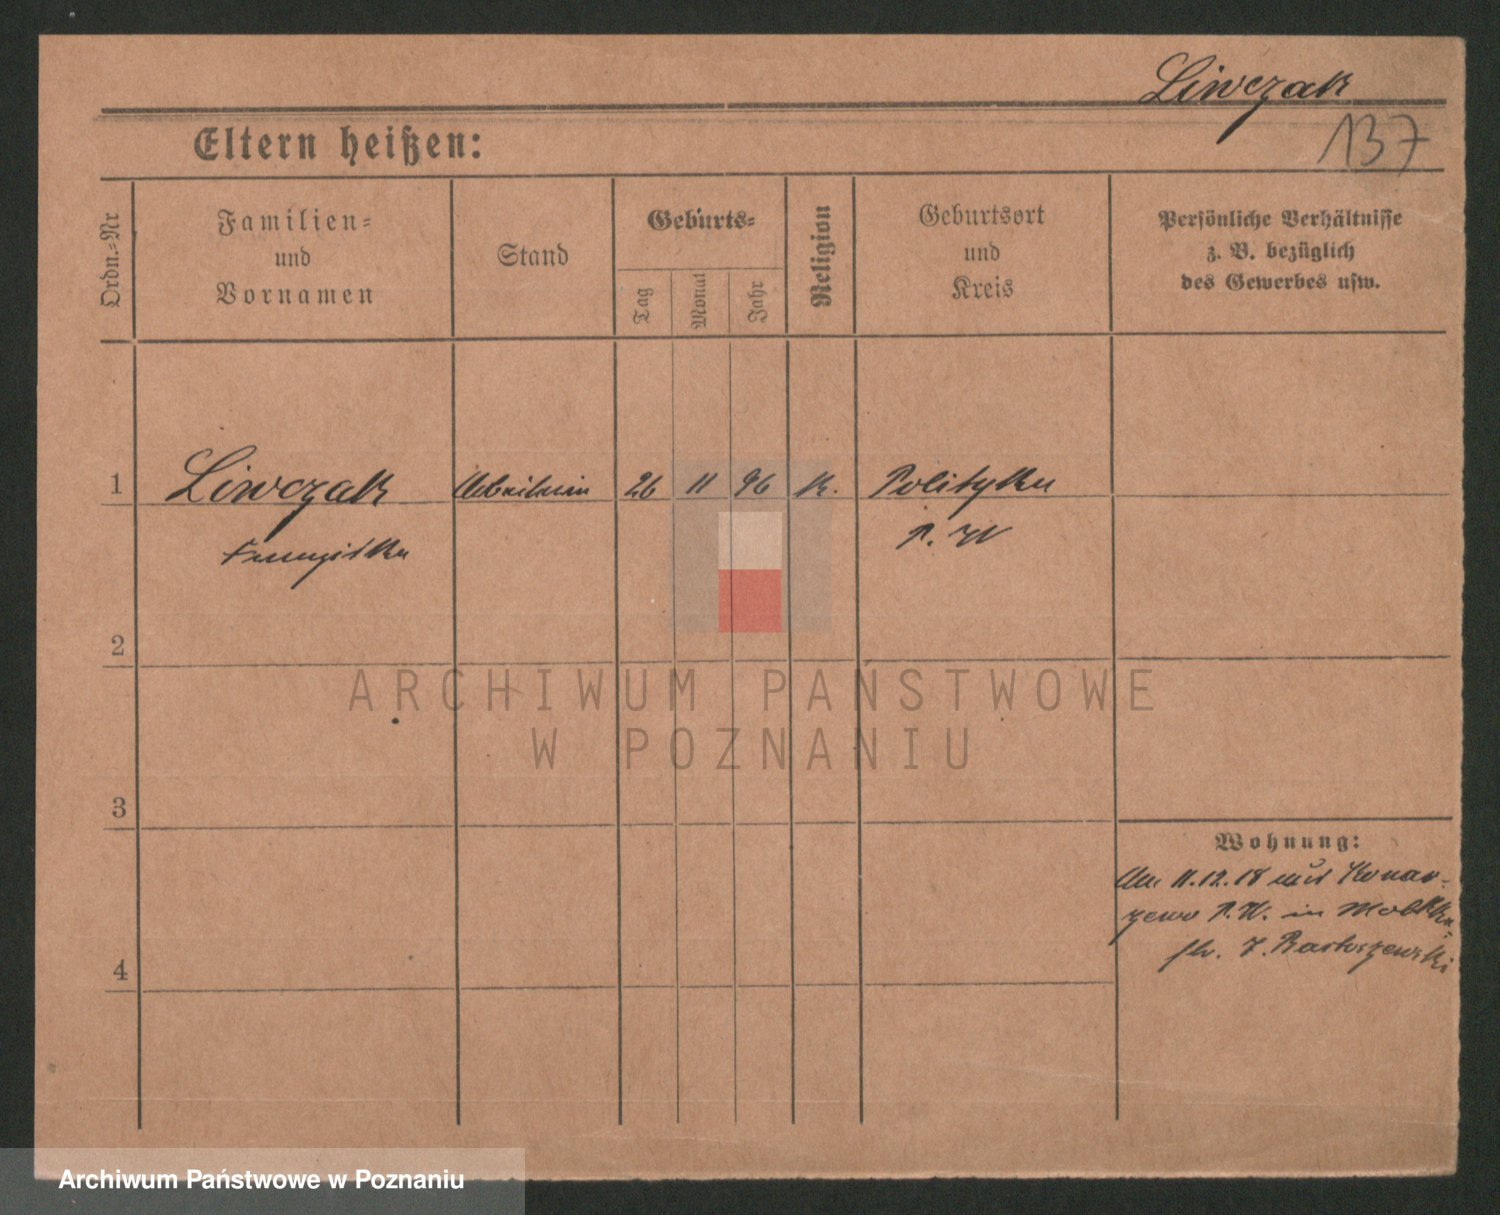 Liwczak
137
Eltern heißen:
Ordn.-Nr
Familien-
und
Vornamen
Stand
Geburts-
Tag
Monat
Jahr
Religion
Geburtsort
und
Kreis
Persönliche Verhältnisse
z. B. bezüglich
des Gewerbes usw.
1
Liwczak
Arbeiterin
26
11
96
K.
Polityka
Franziska
P. W
2
ARCHIWUM PAŃSTWOWE
W POZNANIU
3
Wohnung:
Am 11.12.18 aus Konar-
zewo P.W. in
b. J. Bartoszewski
4
Archiwum Państwowe w Poznaniu